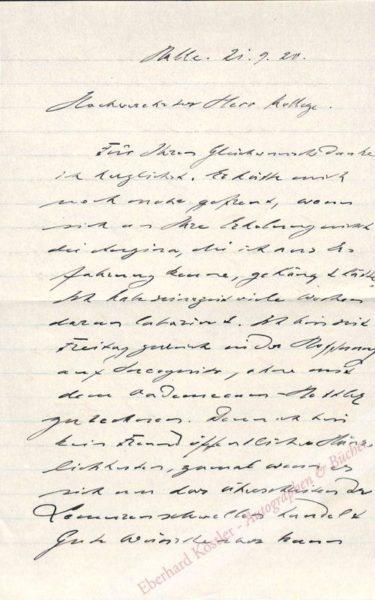 Halle. 21. 9. 20.
Hochverehrter Herr Kollege.
Für Ihren Glückwunsch danke
ich herzlichst. Es hätte mich
noch mehr gefreut, wenn
sich an Ihre Erholung nicht
die Angina, die ich aus Er-
fahrung kenne, gehängt hätte.
Ich habe seinerzeit viele Wochen
daran laboriert. Ich bin seit
Freitag zurück in der Hoffnung
auf Incognito, ohne mit
dem
zu rechnen. Denn ich bin
kein Freund öffentlicher
zumal wenn es
sich um das Überschreiten der
handelt
Gute Wünsche
Eberhard Köstler - Autographen & Bücher